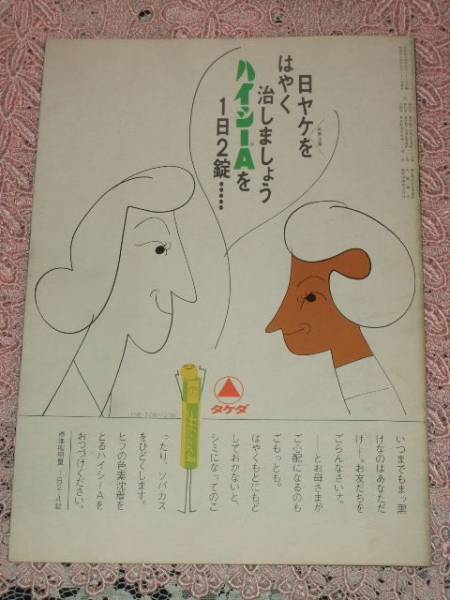 日ヤケを
はやく
治しましょう
ハイシーAを
1日2錠……
タケダ
いつまでもまッ黒
けなのはあなただ
け――。お友だちを
ごらんなさいナ。
――とお母さまが
ご心配になるのも
ごもっとも。
はやくもとにもど
しておかないと、
シミになってのこ
ったり、ソバカス
をひどくします。
ヒフの色素沈着を
とるハイシーAを
おつづけください。